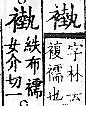 褹
字林云
複襦也
褹
紩布襦
女介切一